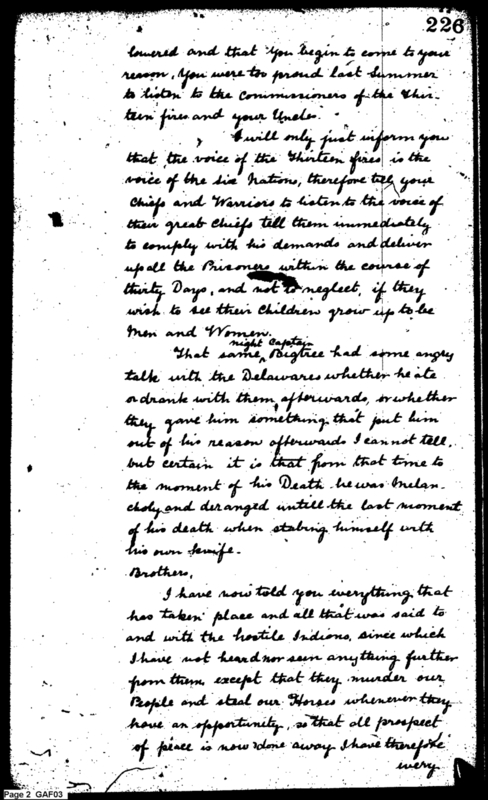 226
lowered and that you begin to come to your
reason, you were too proud last Summer
to listen to the Commissioners of the Thir-
teen fires and your Uncles.
I will only just inform you
that the voice of the Thirteen fires is the
voice of the Six Nations, therefore tell your
Chiefs and Warriors to listen to the voice of
their great Chiefs tell them immediately
to comply with his demands and deliver
up all the Prisoners within the course of
thirty Days, and not to neglect, if they
wish to see their Children grow up to be
Men and Women.
night Captain
That same Bigtree had some angry
talk with the Delawares whether he ate
or drank with them, afterwards, or whether
they gave him something that put him
out of his reason afterwards I cannot tell,
but certain it is that from that time to
the moment of his Death he was Melan-
choly and deranged untill the last moment
of his death when stabing himself with
his own knife.
Brothers,
I have now told you everything that
has taken place and all that was said to
and with the hostile Indians, since which
I have not heard nor seen anything further
from them except that they murder our
People and steal our Horses whenever they
have an opportunity, so that all prospect
of peace is now done away I have therefore
wery
Page 2 GAF03